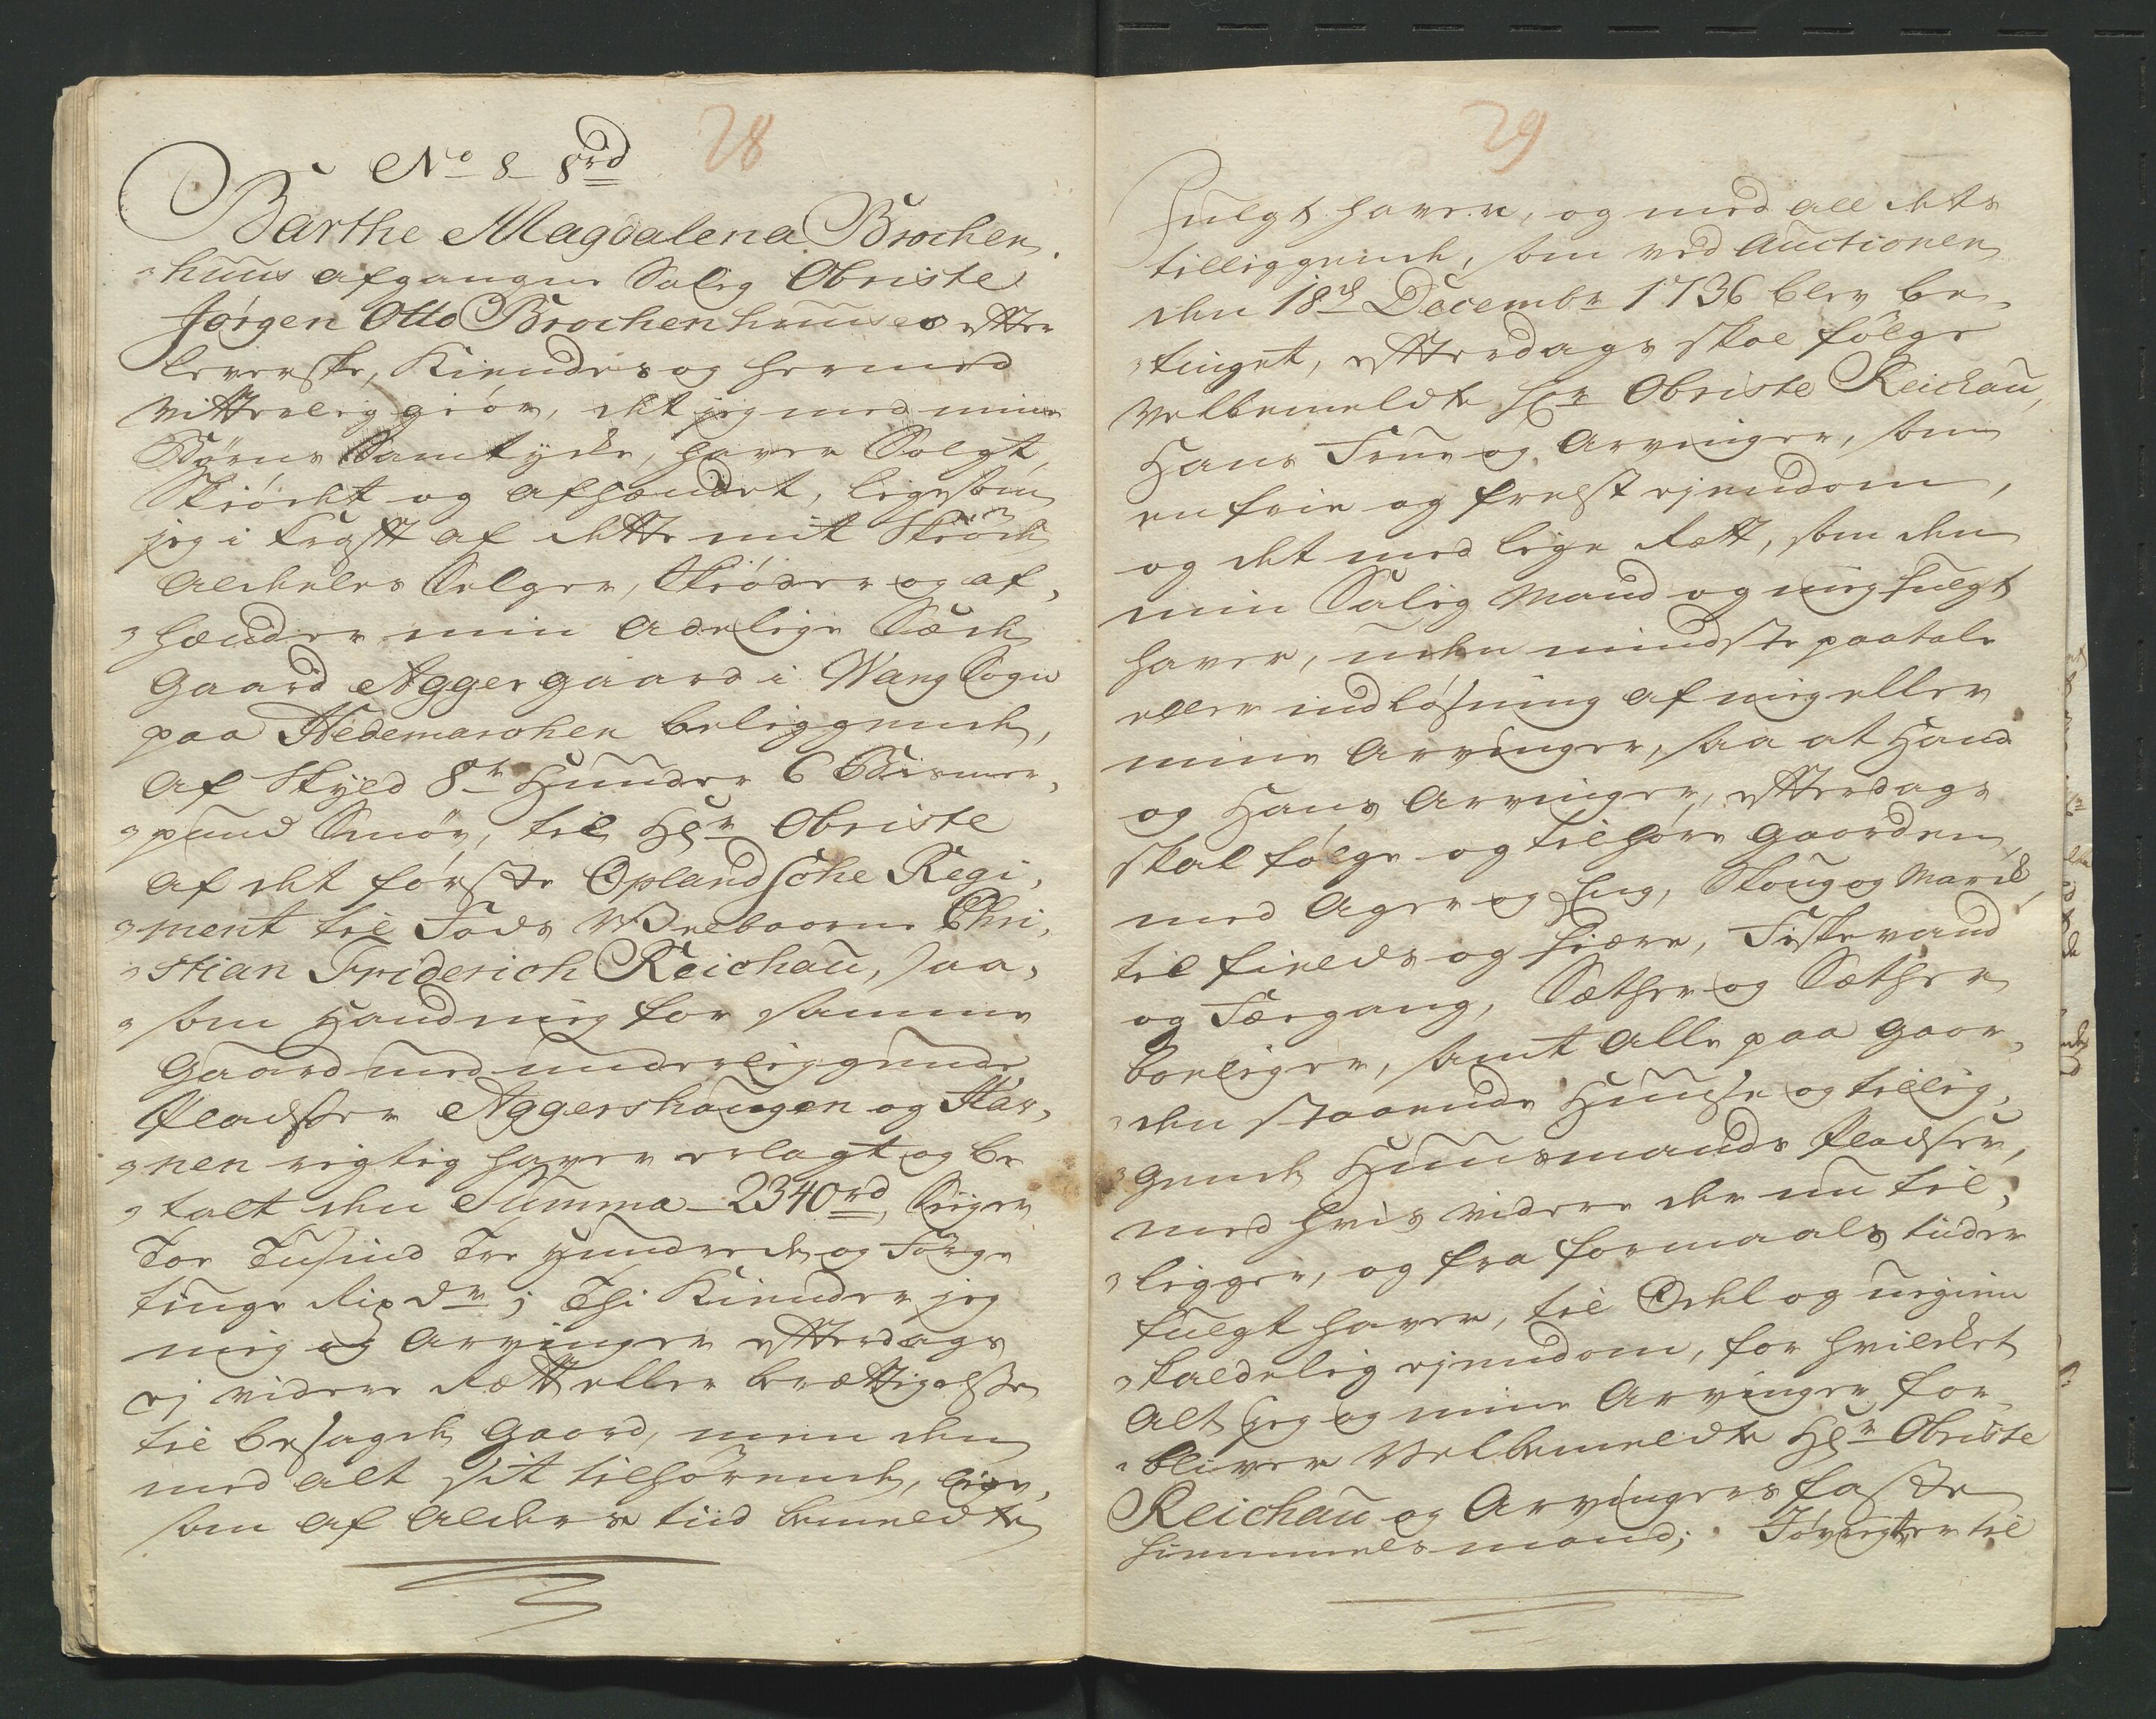 28
No 8 8rd
Barthe Magdalena Brochen,
„huus afgangne Salig Obriste
Jørgen Otto Brochenhuuses efter
leverske, Kiendes og hermed
vitterlig giør, det jeg med mine
Børns Samtyche, haver Solgt,
Skiødet og afhændet, ligesom
jeg i Krafft af dette mit Skiøde
aldeeles Selger, Skiøder og af,
„hænder min Adelige Sæde
Gaard Aggergaard i Wang Sogn
paa Hedemarchen beliggende,
af Skyld 8te Hunder 6 Bismer,
„pund Smør, til Hr Obriste
af det første Oplandsche Regi,
„ment til Fods Velbaarne Chri,
„stian Friderich Reichau, saa,
„som Hand mig for samme
Gaard med underliggende
Pladser Aggershaugen og Kar,
„nen rigtig haver erlagt og be
„talt den Summa 2340rd, Siger
Toe Tusind Tre Hundrede og Førge
tinge Rixdr; Thi Kiender jeg
mig og Arvinger efterdags
ej videre Rætt eller berættigelse
til besagde Gaard, men den
med alt sit tilhørende, lige,
som af Alders tiid bemeldte
29
fulgt haver, og med all dets
tilliggende, som ved Auctionen
den 18de Decembr 1736 blev be,
„tinget, efterdags skal følge
Velbemeldte Hr Obriste Reichau,
Hans Frue og Arvinger, som
en frie og frelst ejendom,
og det med lige Rætt, som den
min Salig Mand og mig fulgt
haver, uden mindste paatale
eller indløsning af mig eller
mine Arvinger, saa at Hand
og Hans Arvinger, efterdags
skal følge og tilhøre Gaarden,
med Ager og Eng, Skoug og March,
til fields og fiære, Fiskevand
og Fægang, Sæther og Sæther
boeliger, samt alle paa Gaar,
„den staaende Huuse og tillig,
„gende Huusmands Pladser,
med hvis videre der nu til,
„ligger, og fra formaals tiider
fulgt haver, til Odel og uigien
„kaldelig ejendom, for hvilchet
alt jeg og mine Arvinger for,
„bliver Velbemeldte Hr Obriste
Reichau og Arvingers faste
hiemmels mand; Jøvrigt er til